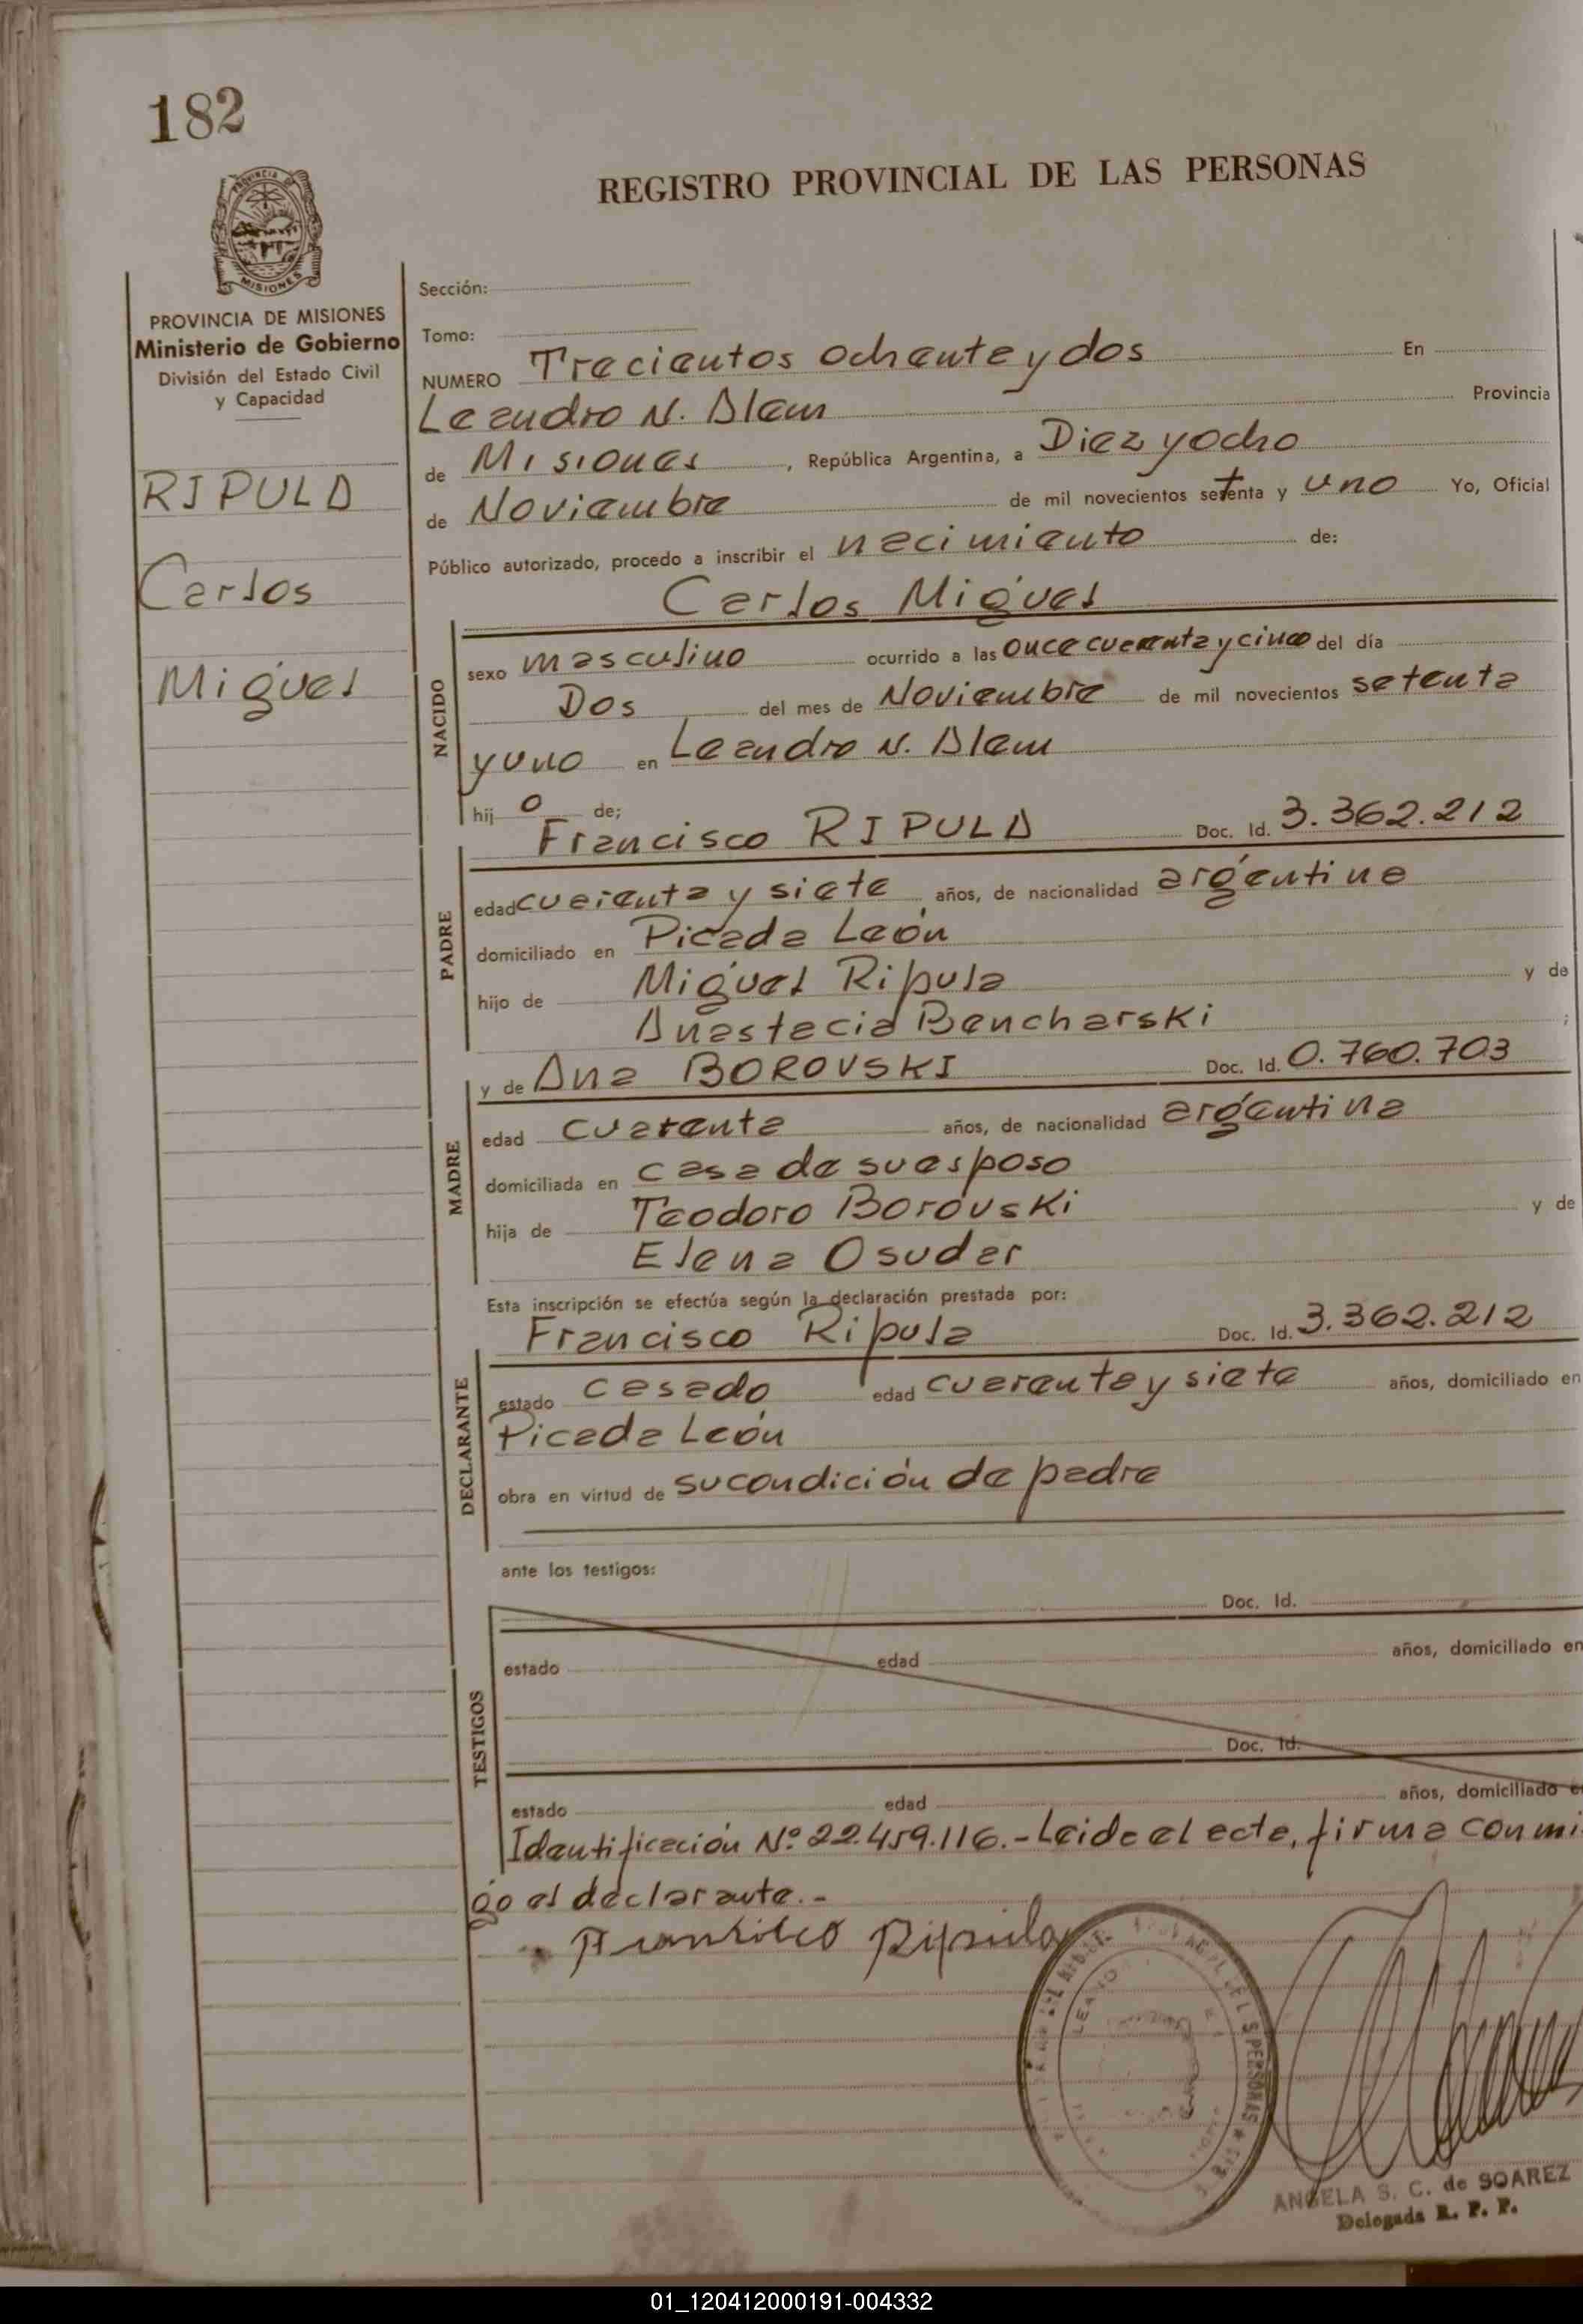 182
REGISTRO PROVINCIAL DE LAS PERSONAS
PROVINCIA DE
MISIONES
PROVINCIA DE MISIONES
Ministerio de Gobierno
División del Estado Civil
y Capacidad
RIPULA
Carlos
Miguel
Sección:
Tomo:
NUMERO Trecientos ochenta y dos En
Leandro N. Alem Provincia
de Misiones, República Argentina, a Diez y ocho
de Noviembre de mil novecientos setenta y uno Yo, Oficial
Público autorizado, procedo a inscribir el nacimiento de:
Carlos Miguel
NACIDO
sexo masculino ocurrido a las once cuarenta y cinco del día
Dos del mes de Noviembre de mil novecientos setenta
y uno en Leandro N. Alem
hij o de;
Francisco RIPULA Doc. Id. 3.362.212
PADRE
edad cuarenta y siete años, de nacionalidad argentina
domiciliado en Picada León
hijo de Miguel Ripula y de
Anastacia Bencharski ;
y de Ana BOROVSKI Doc. Id. 0.760.703
MADRE
edad cuarenta años, de nacionalidad argentina
domiciliada en casa de su esposo
hija de Teodoro Borovski y de
Elena Osudar
Esta inscripción se efectúa según la declaración prestada por:
Francisco Ripula Doc. Id. 3.362.212
DECLARANTE
estado casado edad cuarenta y siete años, domiciliado en
Picada León
obra en virtud de su condición de padre
ante los testigos:
Doc. Id.
TESTIGOS
estado edad años, domiciliado en
Doc. Id.
estado edad años, domiciliado en
Identificación Nº 22.459.116.- Leida el acta, firma conmi
go el declarante.-
Francisco Ripula
PERSONAS
ANGELA S. C. de SOAREZ
Delegada R. P. P.
01_120412000191-004332